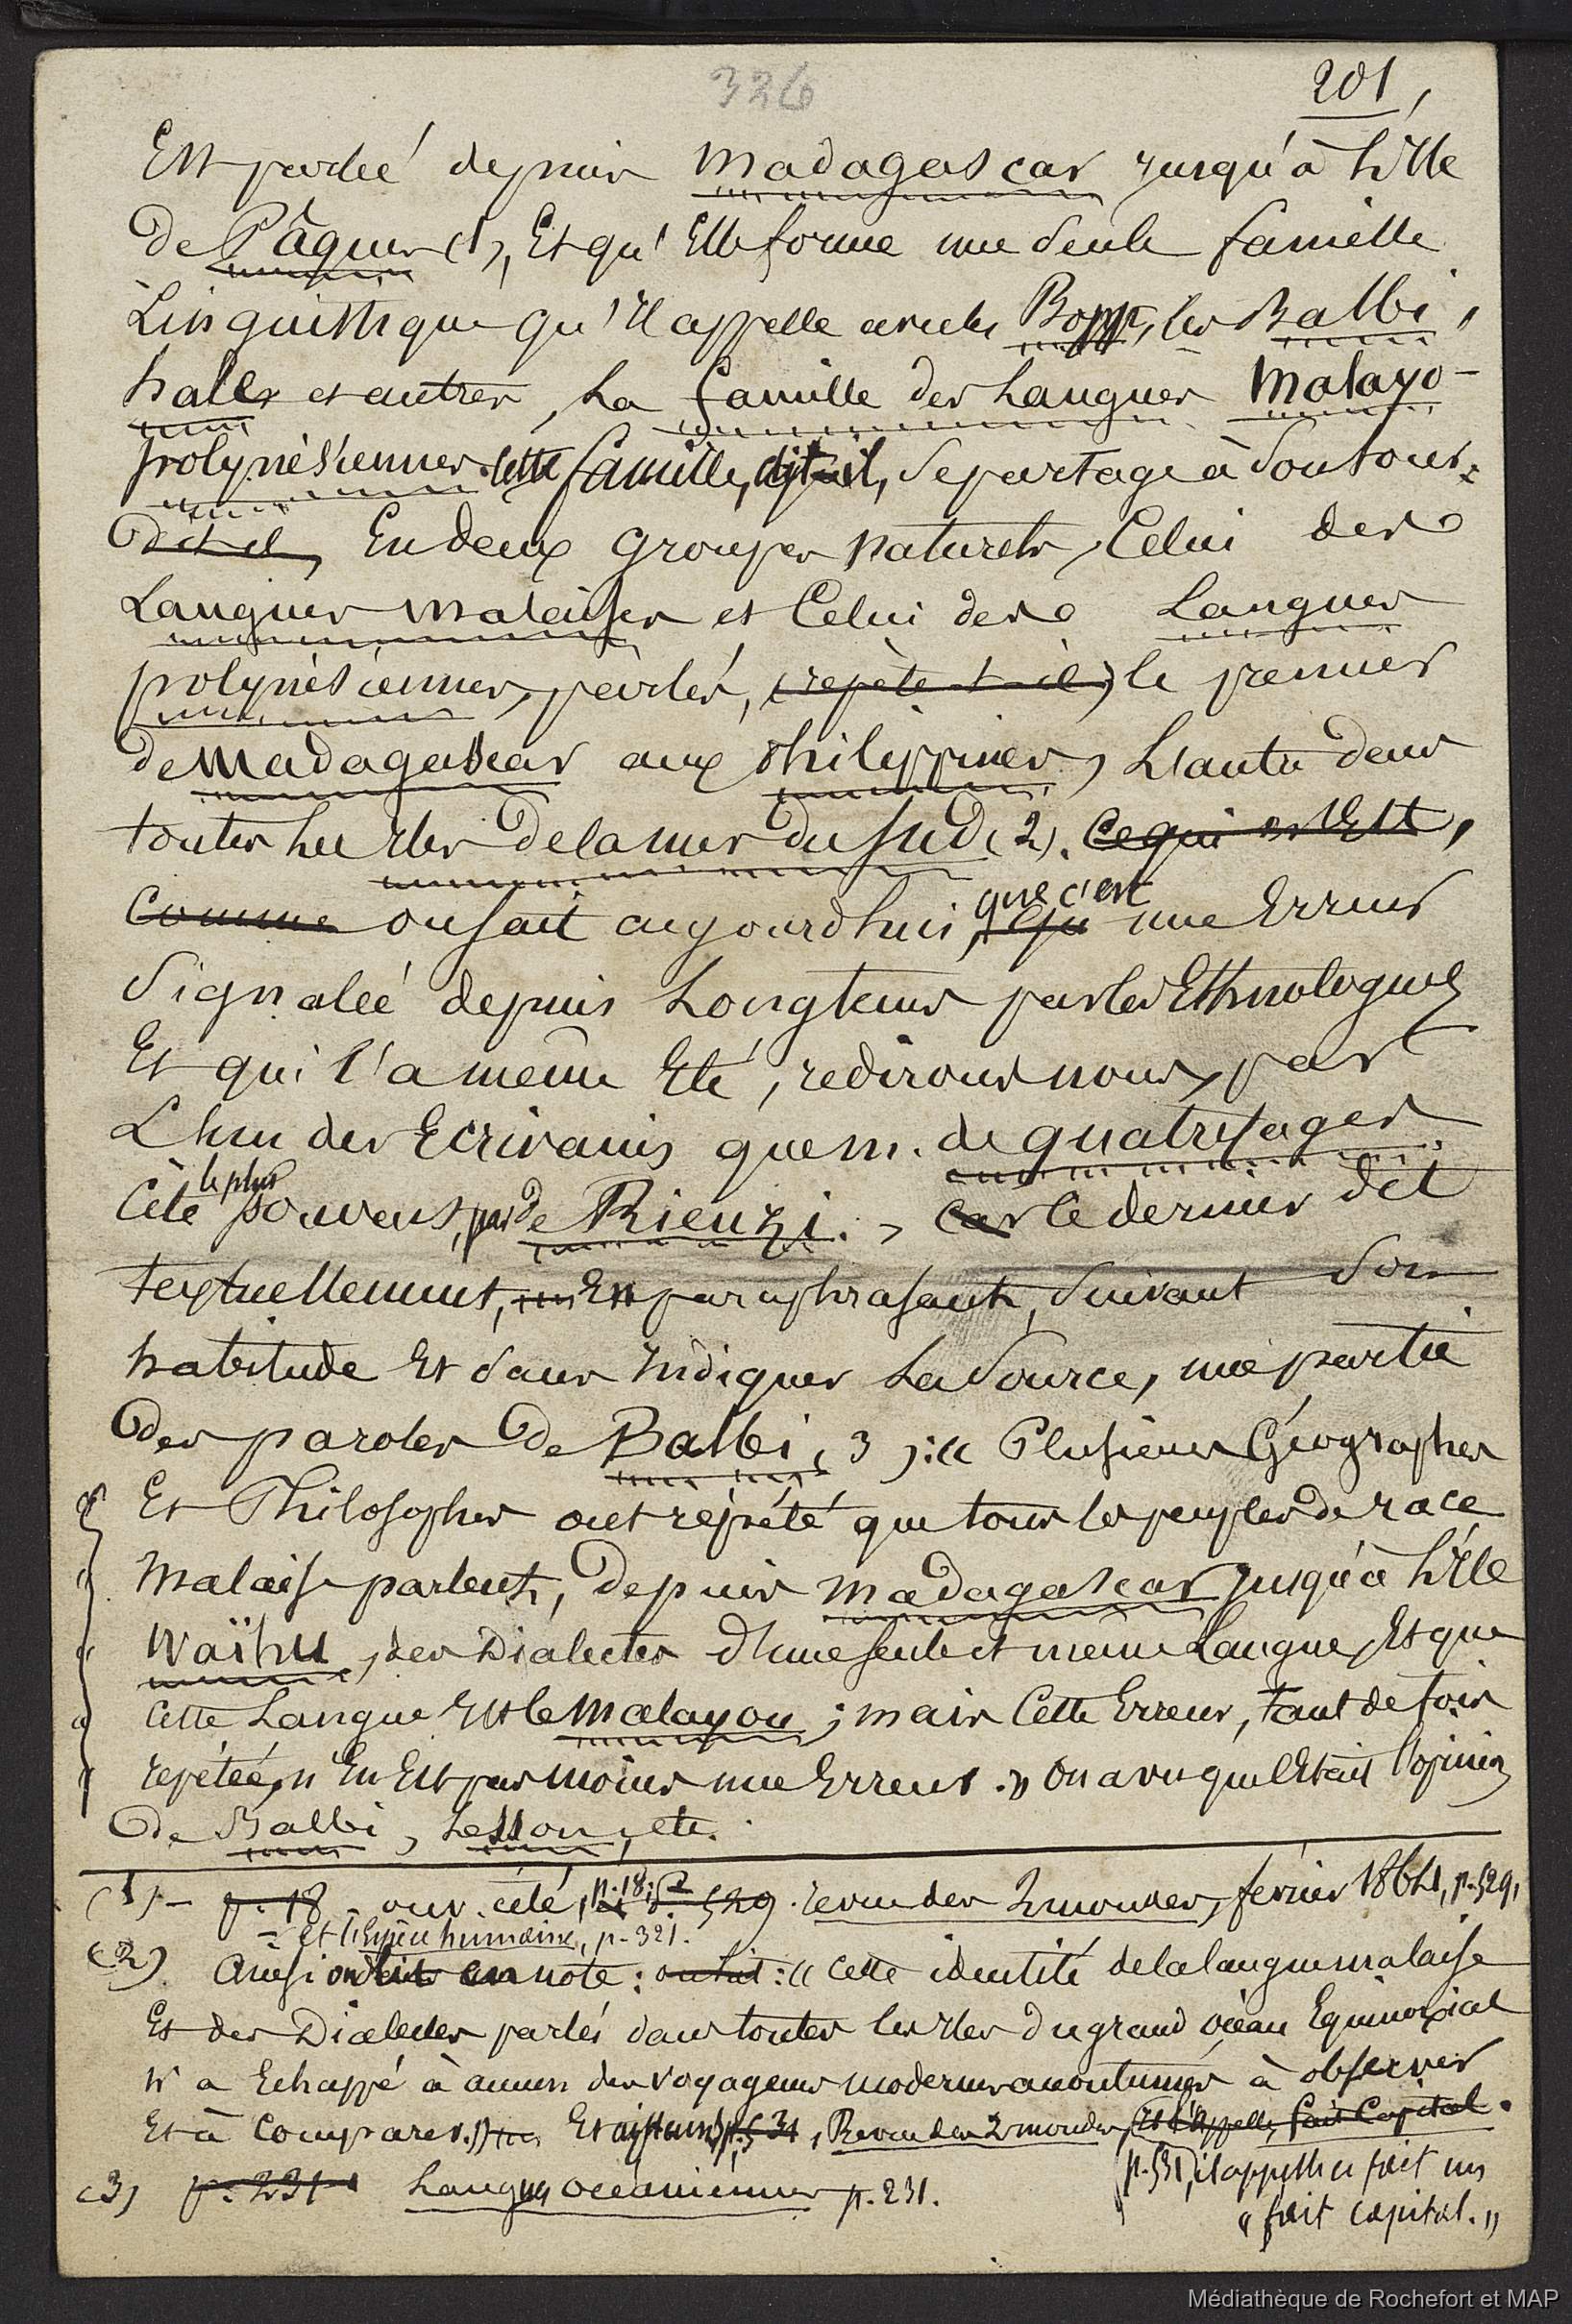 326
201,
Est parlée depuis Madagascar jusqu'à l'Ile
de Pâques (1), Et qu'Elle forme une seule famille
Linguistique qu'Il appelle avec les Bopp, les Balbi,
hales et autres, La famille des Langues Malayo-
polynésiennes. Cette famille, dit-il, se partage à son tour,
dit-il, En deux groupes naturels, Celui des
Langues Malaises et Celui des Langues
polynésiennes, parlés, (répète-t-il,) le premier
de Madagascar aux Philippines, L'autre dans
toutes les Iles de la mer du Sud (2). Ce qui est,
comme on sait aujourd'hui, que c'est une Erreur
Signalée depuis Longtems par les Ethnologues
Et qui l'a même Eté, redirons nous, par
L'un des Ecrivains que M. de Quatrefages
Cite le plus souvent, par de Rienzi. Car ce dernier dit
textuellement, En paraphrasant, Suivant Son
habitude Et Sans Indiquer La Source, une partie
des paroles de Balbi (3) : « Plusieurs Géographes
Et Philosophes ont répété que tous les peuples de race
Malaise parlent, depuis Madagascar jusqu'à l'Ile
Waïhu, des Dialectes d'une seule et même Langue, Et que
Cette Langue Est le Malayou ; mais Cette Erreur, tant de fois
répétée, n'En Est pas moins une Erreur. » On a vu quel Etait l'opinion
de Balbi, Lesson, etc.
(1) – p. 18 ouv. cité, p. 18, 529. revue des 2 mondes, février 1864, p. 529,
= Et l'Espèce humaine, p. 321.
(2). Ainsi on lit en note : « Cette identité de la langue malaise
Et des Dialectes parlés dans toutes les Iles du grand océan Equinoxial
N'a Echappé à aucun des voyageurs modernes accoutumés à observer
Et à Comparer. » Et ailleurs, p. 531, Revue des 2 mondes, Et l'appelle, fait Capital.
p. 531, il appelle ce fait un
« fait capital. »
(3) p. 231 Langues océaniennes p. 231.
Médiathèque de Rochefort et MAP